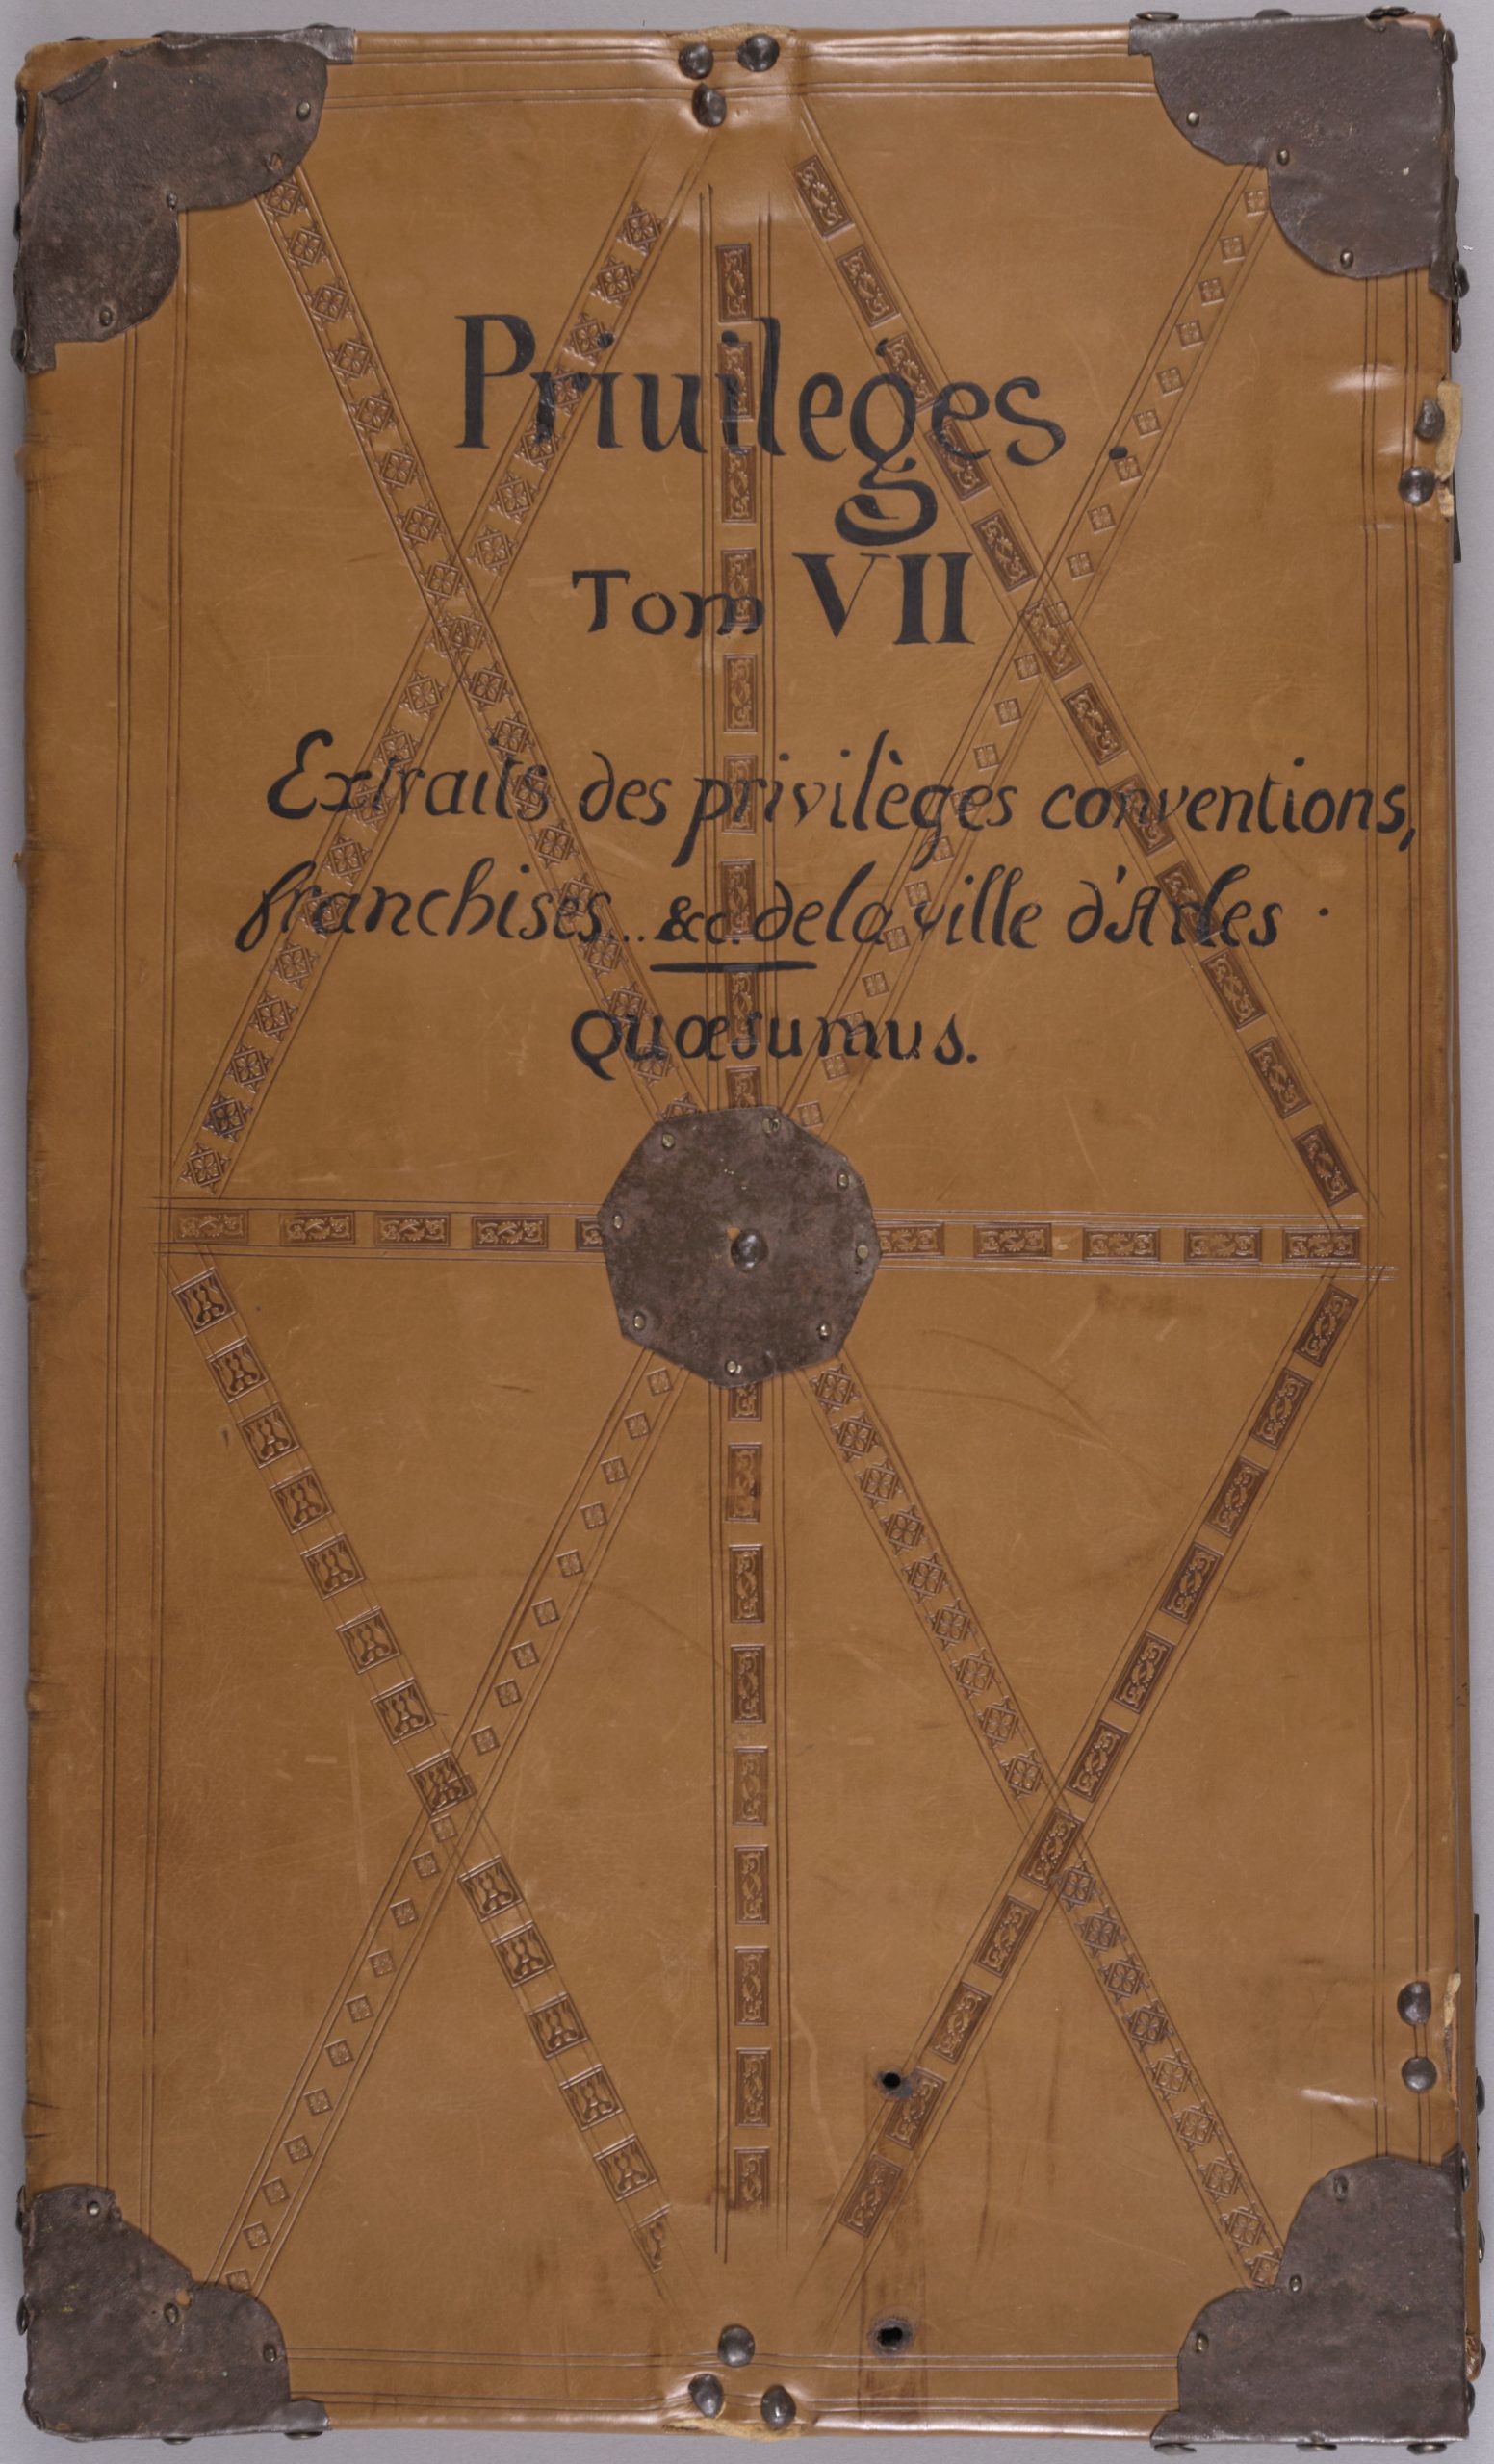 Priuileges.
Tom VII
Extraits des privilèges conventions,
franchises... &c. de la ville d'Arles.
Quæsumus.